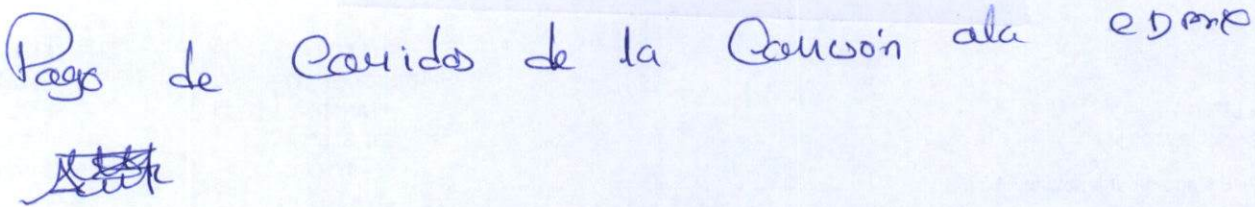 Pago de Corridos de la Comisión ala